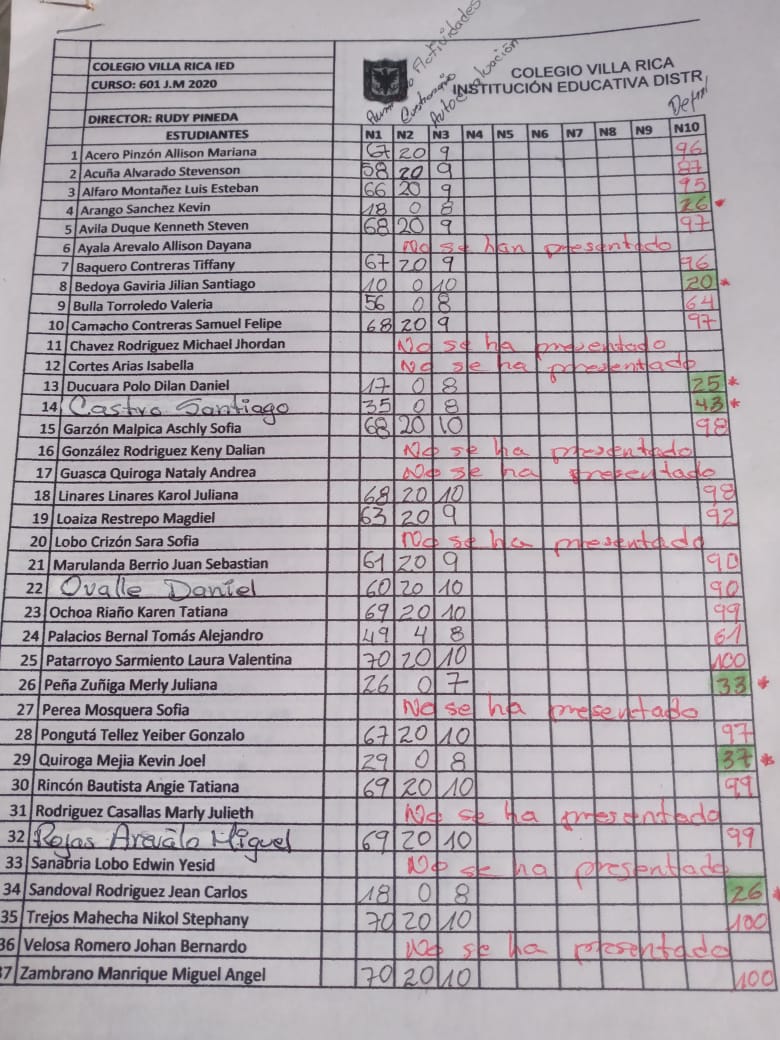 Actividades
Cuestionario
Autoevaluación
COLEGIO VILLA RICA IED
COLEGIO VILLA RICA
CURSO: 601 J.M 2020
INSTITUCIÓN EDUCATIVA DISTR
DIRECTOR: RUDY PINEDA
ESTUDIANTES N1 N2 N3 N4 N5 N6 N7 N8 N9 N10
1 Acero Pinzón Allison Mariana 67 20 9 96
2 Acuña Alvarado Stevenson 58 20 9 87
3 Alfaro Montañez Luis Esteban 66 20 9 95
4 Arango Sanchez Kevin 18 0 8 26
5 Avila Duque Kenneth Steven 68 20 9 97
6 Ayala Arevalo Allison Dayana No se han presentado
7 Baquero Contreras Tiffany 67 20 9 96
8 Bedoya Gaviria Jilian Santiago 10 0 10 20 *
9 Bulla Torroledo Valeria 56 0 8 64
10 Camacho Contreras Samuel Felipe 68 20 9 97
11 Chavez Rodriguez Michael Jhordan No se ha presentado
12 Cortes Arias Isabella No se ha presentado
13 Ducuara Polo Dilan Daniel 17 0 8 25 *
14 Castro Santiago 35 0 8 43 *
15 Garzón Malpica Aschly Sofia 68 20 10 98
16 González Rodriguez Keny Dalian No se ha presentado
17 Guasca Quiroga Nataly Andrea No se ha presentado
18 Linares Linares Karol Juliana 68 20 10 98
19 Loaiza Restrepo Magdiel 63 20 9 92
20 Lobo Crizón Sara Sofia No se ha presentado
21 Marulanda Berrio Juan Sebastian 61 20 9 90
22 Ovalle Daniel 60 20 10 90
23 Ochoa Riaño Karen Tatiana 69 20 10 99
24 Palacios Bernal Tomás Alejandro 49 4 8 61
25 Patarroyo Sarmiento Laura Valentina 70 20 10 100
26 Peña Zuñiga Merly Juliana 26 0 7 33 *
27 Perea Mosquera Sofia No se ha presentado
28 Pongutá Tellez Yeiber Gonzalo 67 20 10 97
29 Quiroga Mejia Kevin Joel 29 0 8 37 *
30 Rincón Bautista Angie Tatiana 69 20 10 99
31 Rodriguez Casallas Marly Julieth No se ha presentado
32 Rojas Arevalo Miguel 69 20 10 99
33 Sanabria Lobo Edwin Yesid No se ha presentado
34 Sandoval Rodriguez Jean Carlos 18 0 8 26 *
35 Trejos Mahecha Nikol Stephany 70 20 10 100
36 Velosa Romero Johan Bernardo No se ha presentado
37 Zambrano Manrique Miguel Angel 70 20 10 100